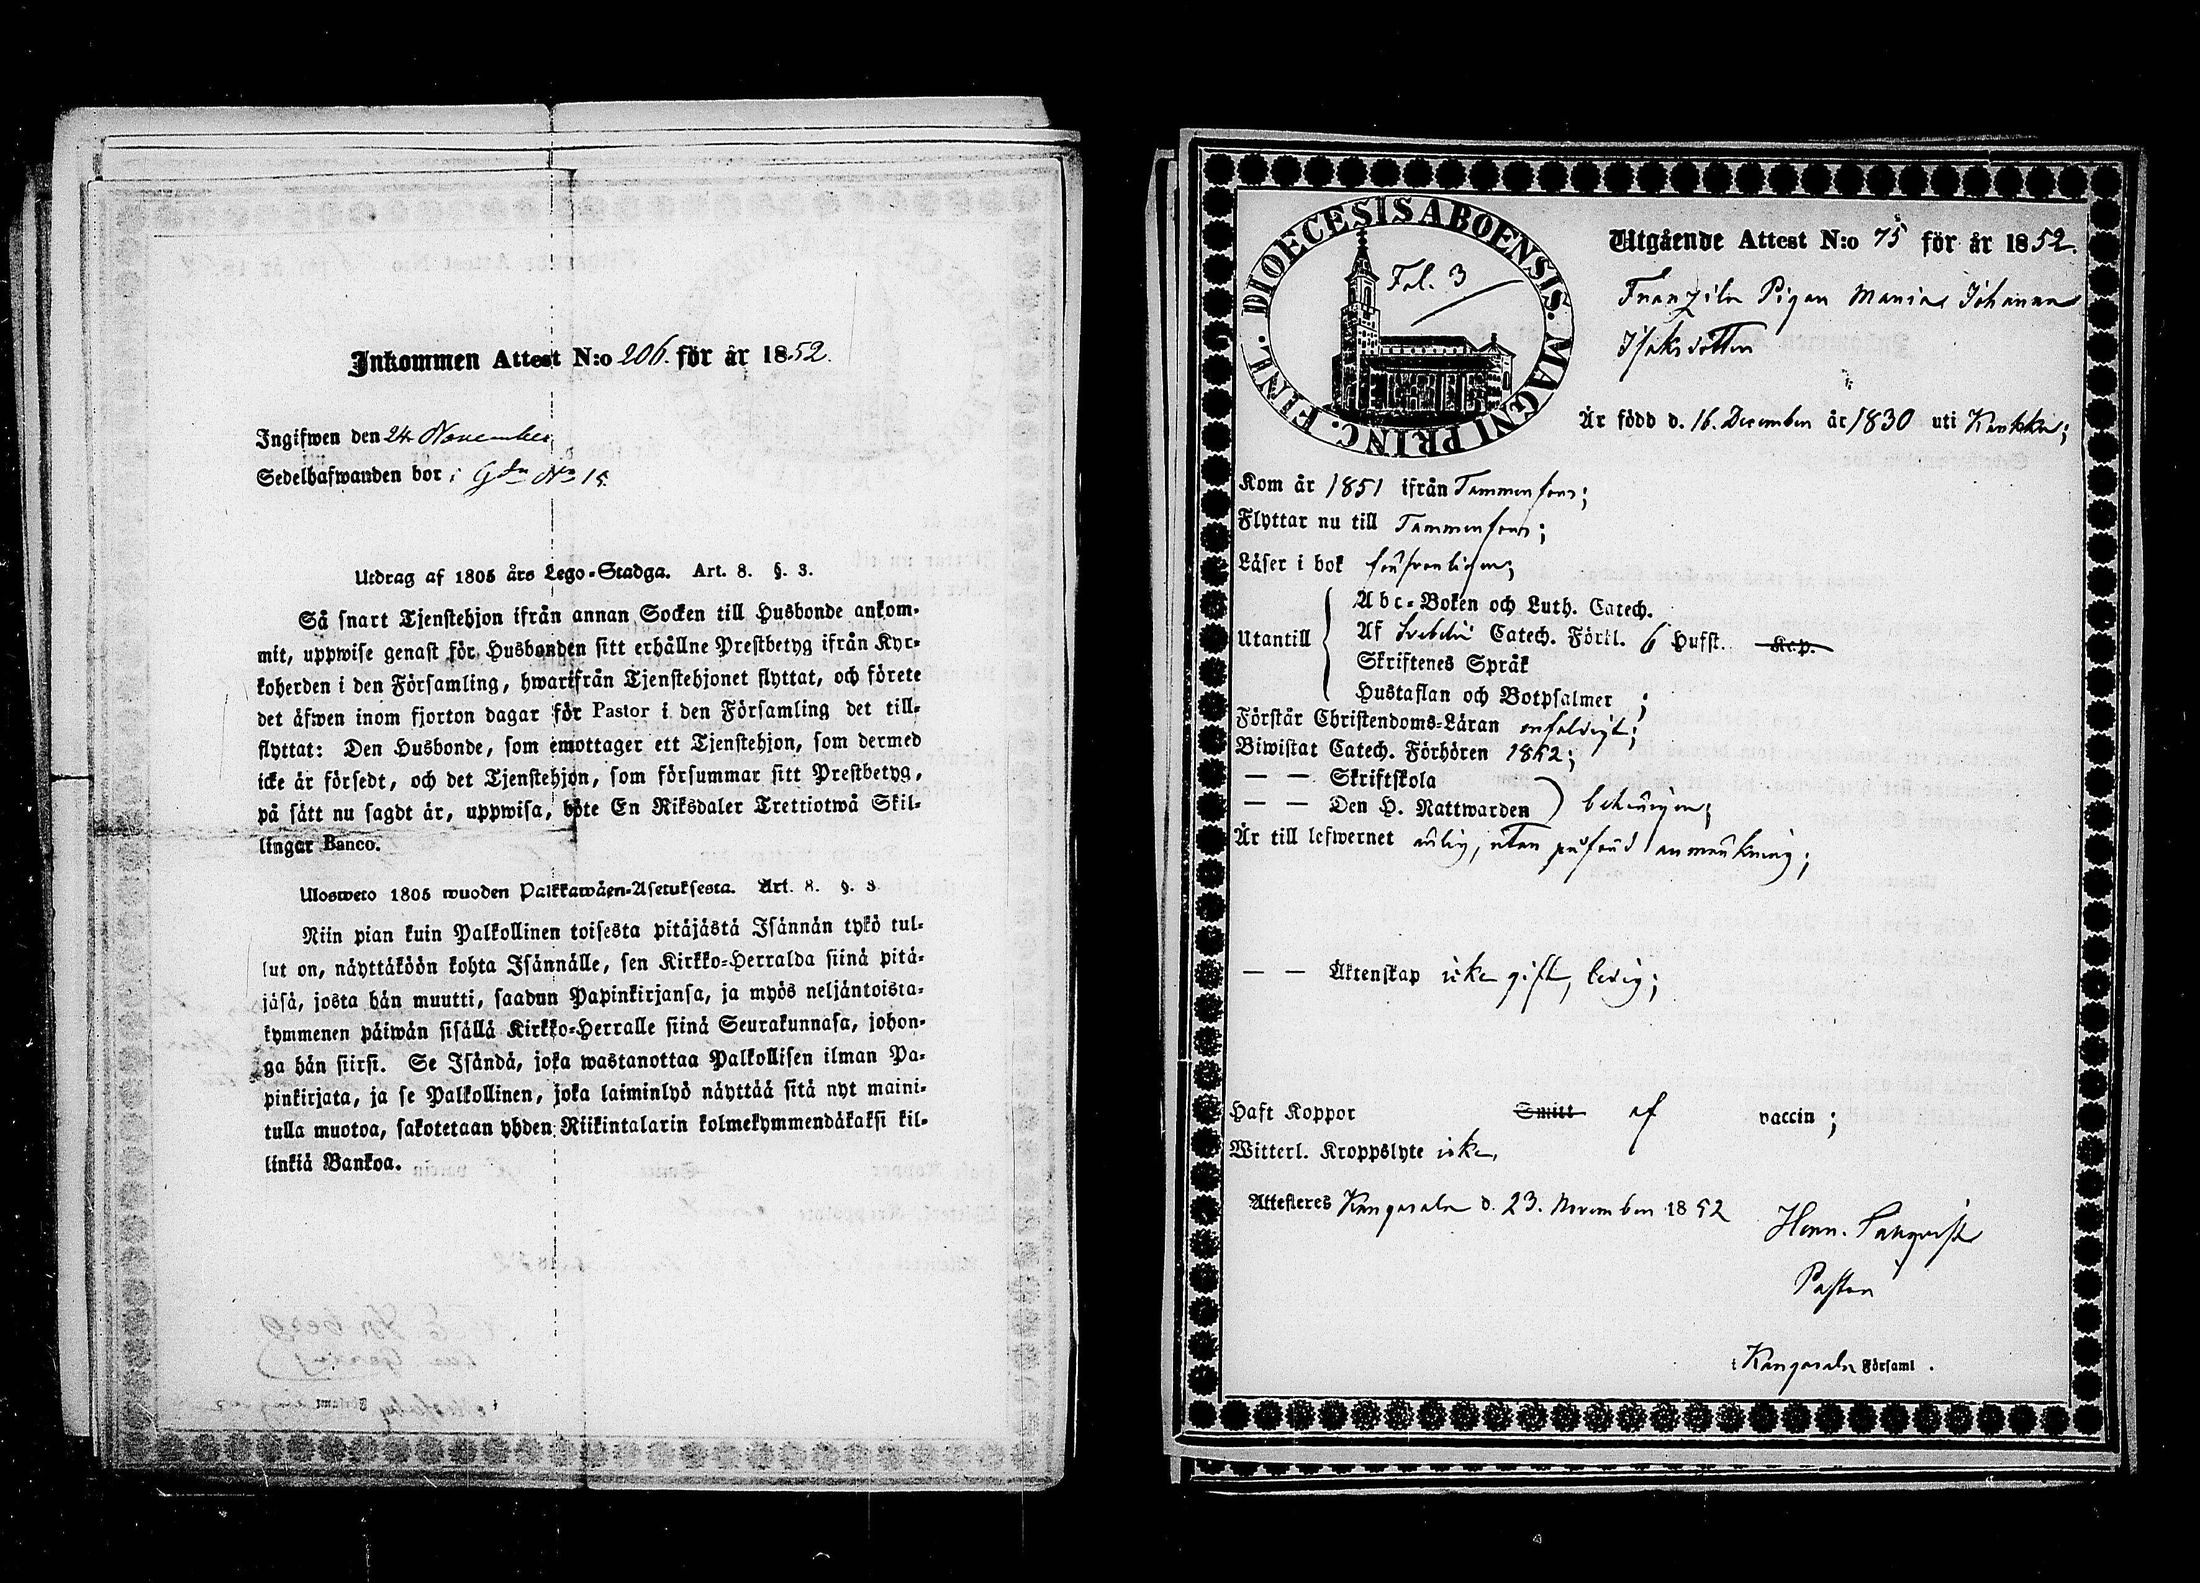 Inkommen Attest N:o 206. för år 1852.
Ingifwen den 24 November
Sedelhafwanden bor i Gdn No 15
Utdrag af 1805 års Lego-Stadga. Art. 8. §. 3.
Så snart Tjenstehjon ifrån annan Socken till Husbonde ankom-
mit, uppwise genast för Husbonden sitt erhållne Prestbetyg ifrån Kyr-
koherden i den Församling, hwarifrån Tjenstehjonet flyttat, och förete
det äfwen inom fjorton dagar för Pastor i den Församling det till-
flyttat: Den Husbonde, som emottager ett Tjenstehjon, som dermed
icke är försedt, och det Tjenstehjon, som försummar sitt Prestbetyg,
på sätt nu sagdt är, uppwisa, böte En Riksdaler Trettiotwå Skil-
lingar Banco.
Ulosweto 1805 wuoden Palkkawäen-Asetuksesta. Art. 8. §. 3
Niin pian kuin Palkollinen toisesta pitäjästä Isännän tykö tul-
lut on, näyttäköön kohta Isännälle, sen Kirkko-Herralda siinä pitä-
jäsä, josta hän muutti, saadun Papinkirjansa, ja myös neljäntoista-
kymmenen päiwän sisällä Kirkko-Herralle siinä Seurakunnasa, johon-
ga hän siirsi. Se Isändä, joka wastanottaa Palkollisen ilman Pa-
pinkirjata, ja se Palkollinen, joka laiminlyö näyttää sitä nyt maini-
tulla muotoa, sakotetaan yhden Riikintalarin kolmekymmendäkaksi kil-
linkiä Bankoa.
DIOECESIS ABOENSIS. MAGNI PRINC. FINL.
Fol. 3
Utgående Attest N:o 75 för år 1852.
Pigan Maria Johanna
Isaksdotter
Är född d. 16. December år 1830 uti
Kom år 1851 ifrån Tammerfors;
Flyttar nu till Tammerfors;
Läser i bok försvarligen;
Utantill
Abc-Boken och Luth. Catech.
Af Svebelii Catech. Förkl. 6 Hufst. Kap.
Skriftenes Språk
Hustaflan och Botpsalmer ;
Förstår Christendoms-Läran enfaldigt;
Biwistat Catech. Förhören 1852;
— — Skriftskola
— — Den H. Nattwarden behörigen;
Är till lefwernet ärlig, utan påförd anmärkning;
— — Äktenskap icke gift, ledig;
Haft Koppor Smitt af vaccin ;
Witterl. Kroppslyte icke,
Attesteres Kangasala d. 23. November 1852
Henr.
Pastor
i Kangasala Församl.